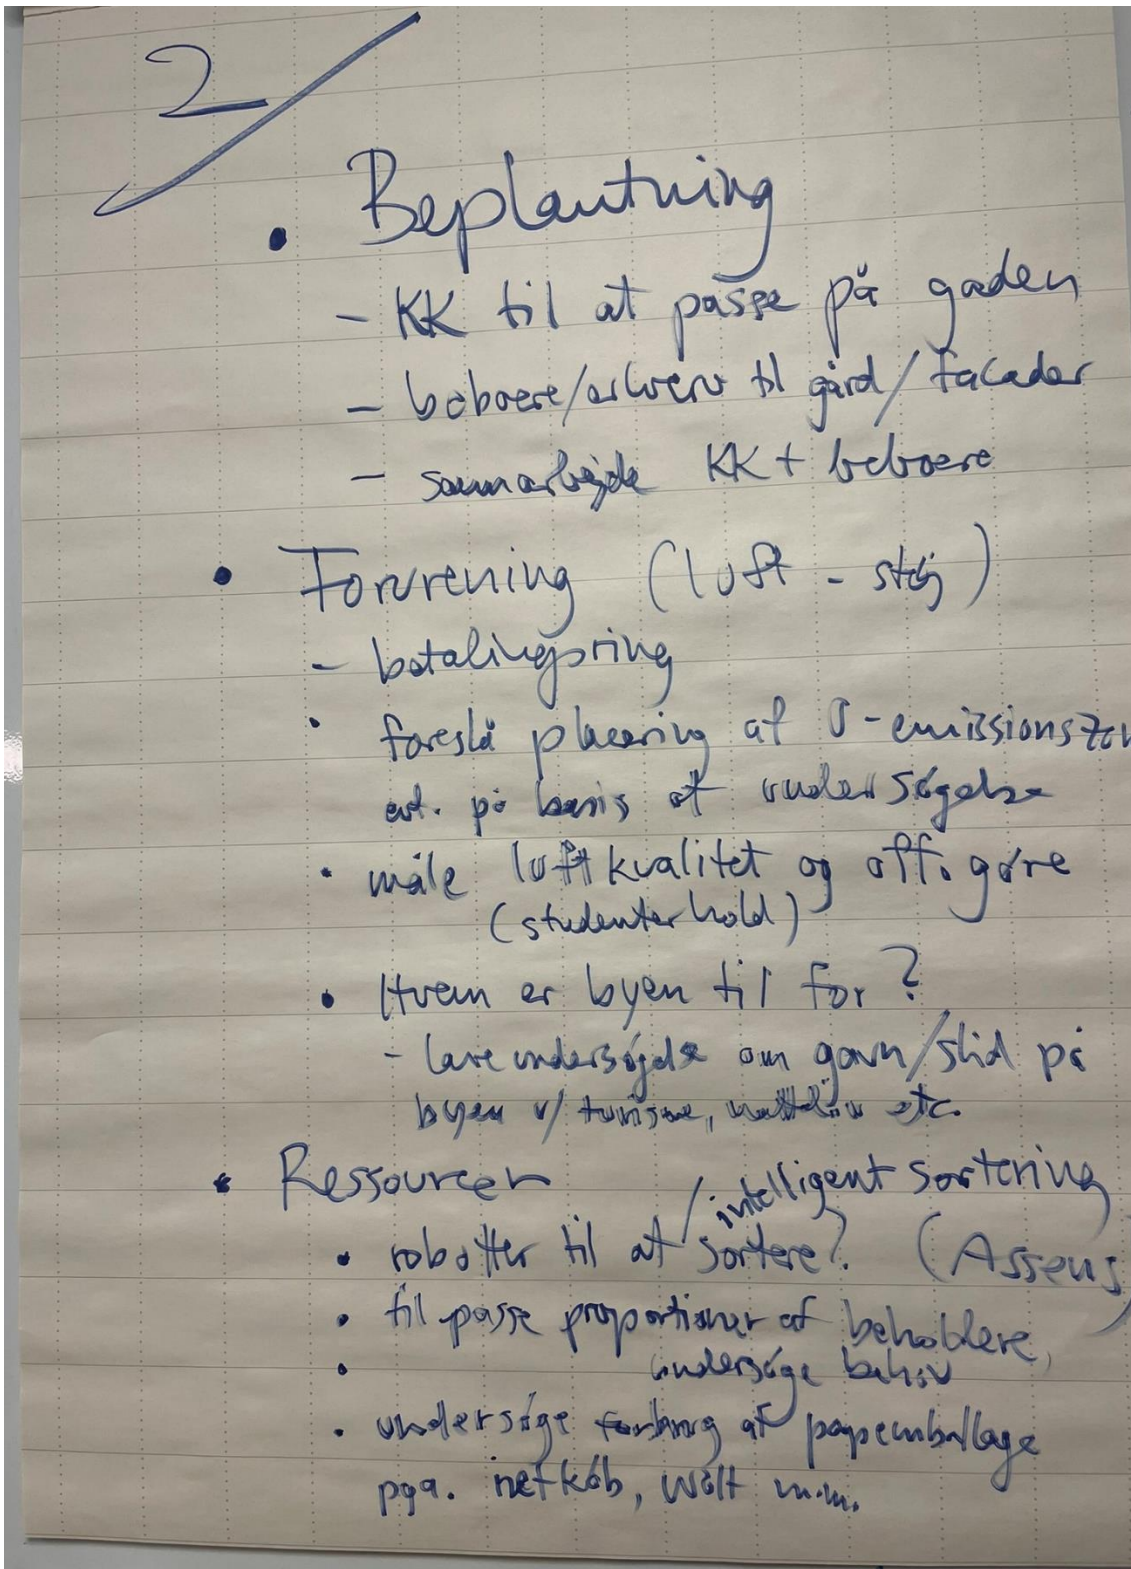 2/
• Beplantning
- KK til at passe på gaden
- beboere/erhverv til gård/facader
- samarbejde KK + beboere
• Forurening (luft - støj)
- betalingsring
• foreslå placering af 0-emissionszon
evt. på basis af undersøgelse
• måle luftkvalitet og off. gøre
(studenterhold)
• Hvem er byen til for?
- lave undersøgelse om gavn/slid på
byen v/ turisme, natteliv etc.
• Ressourcer
/intelligent sortering
• robotter til at sortere? (Assens)
• tilpasse proportioner af beholdere,
• undersøge behov
• undersøge forbrug af papemballage
pga. netkøb, Wolt m.m.